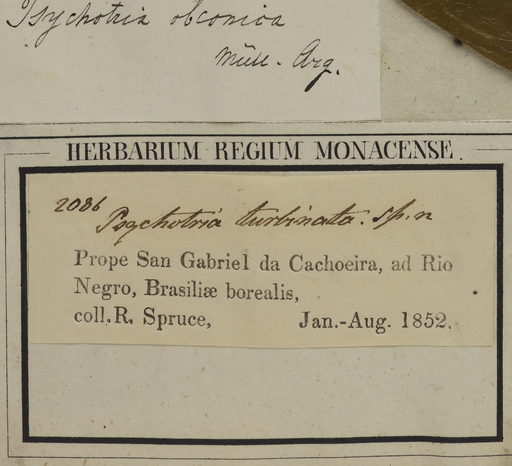 Psychotria obconica
Müll. Arg.
HERBARIUM REGIUM MONACENSE.
2086
Psychotria turbinata. sp. n
Prope San Gabriel da Cachoeira, ad Rio
Negro, Brasiliæ borealis,
coll. R. Spruce, Jan.-Aug. 1852.